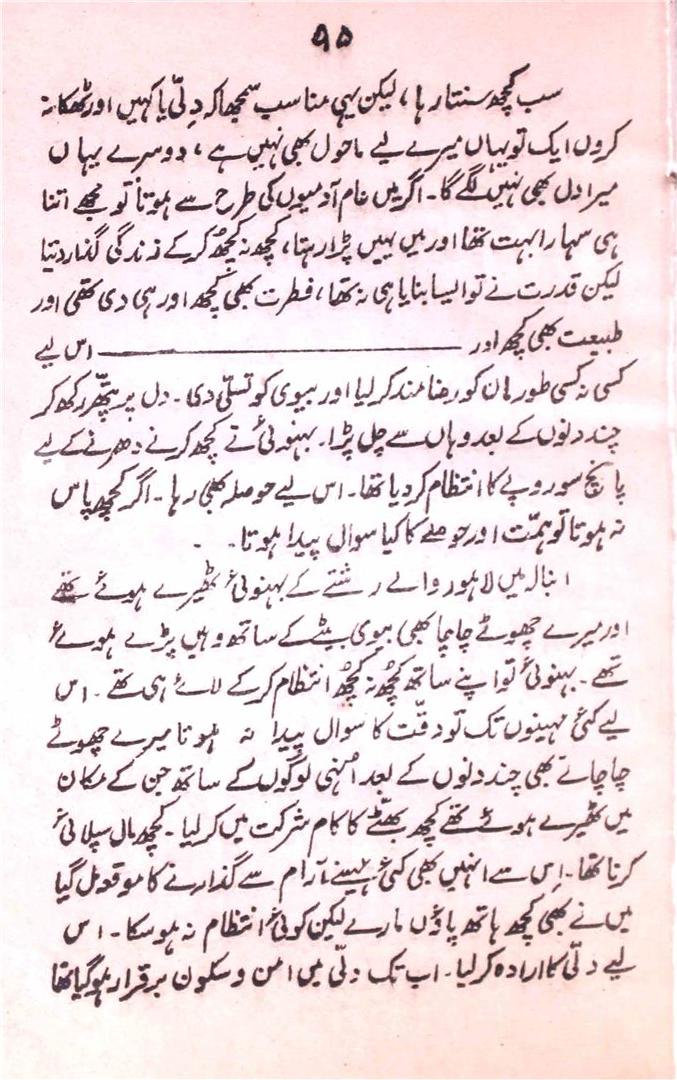 ۹۵
سب کچھ سنتا رہا، لیکن یہی مناسب سمجھا کہ دِلّی یا کہیں اور ٹھکانہ
کروں ایک تو یہاں میرے لیے ماحول بھی نہیں ہے، دوسرے یہاں
میرا دل بھی نہیں لگے گا۔ اگر میں عام آدمیوں کی طرح سے ہوتا تو مجھے اتنا
ہی سہارا بہت تھا اور میں یہیں پڑا رہتا، کچھ نہ کچھ کر کے زندگی گذار دیتا
لیکن قدرت نے تو ایسا بنایا ہی نہ تھا، فطرت بھی کچھ اور ہی دی تھی اور
طبیعت بھی کچھ اور ــــــــــــــــــــ اس لیے
کسی نہ کسی طور ماں کو رضا مند کر لیا اور بیوی کو تسلّی دی۔ دل پر پتھّر رکھ کر
چند دنوں کے بعد وہاں سے چل پڑا۔ بہنوئی نے کچھ کرنے دھرنے کے لیے
پانچ سو روپے کا انتظام کر دیا تھا۔ اس لیے حوصلہ بھی رہا۔ اگر کچھ پاس
نہ ہوتا تو ہمّت اور حوصلے کا کیا سوال پیدا ہوتا۔
انبالہ میں لاہور والے رشتے کے بہنوئی ٹھیرے ہوئے تھے
اور میرے چھوٹے چاچا بھی بیوی بیٹے کے ساتھ وہیں پڑے ہوئے
تھے۔ بہنوئی تو اپنے ساتھ کچھ نہ کچھ انتظام کر کے لائے ہی تھے۔ اس
لیے کئی مہینوں تک تو دقّت کا سوال پیدا نہ ہوتا میرے چھوٹے
چاچا نے بھی چند دنوں کے بعد اُنہی لوگوں کے ساتھ جن کے مکان
میں ٹھیرے ہوئے تھے کچھ بھٹّے کا کام شرکت میں کر لیا۔ کچھ مال سپلائی
کرنا تھا۔ اِس سے انہیں بھی کئی مہینے آرام سے گذارنے کا موقعہ مل گیا
میں نے بھی کچھ ہاتھ پاؤں مارے لیکن کوئی انتظام نہ ہو سکا۔ اس
لیے دلّی کا ارادہ کر لیا۔ اب تک دلّی میں امن و سکون برقرار ہو گیا تھا